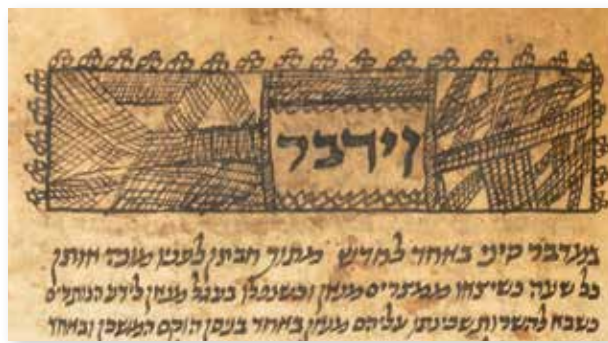 וידבר
במדבר סיני באחד לחדש מתוך חבתן לפניו מונה אותן
כל שעה כשיצאו ממצרים מנאן וכשנפלו בעגל מנאן לידע הנותרים
כשבא להשרות שכינתו עליהם מנאן באחד בניסן הוקם המשכן ובאחד